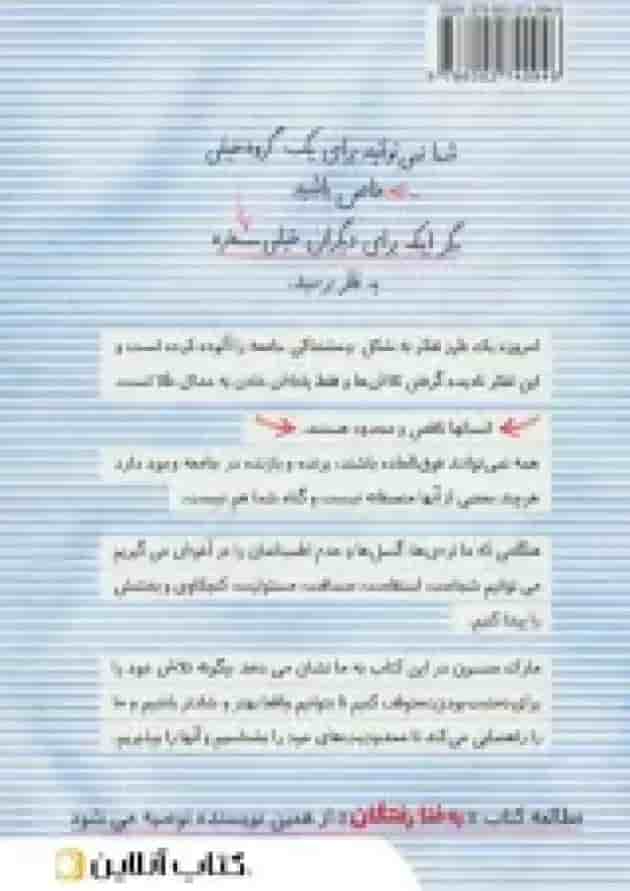 شما نمی‌توانید برای یک گروه خیلی
خاص باشید
مگر اینکه برای دیگران خیلی مسخره
به نظر برسید.
امروزه یک طرز تفکر به شکل جامعه را آلوده کرده است و
این تفکر نادیده گرفتن تلاش‌ها و فقط پاداش دادن به مدال طلا است.
انسانها ناقص و محدود هستند.
همه نمی‌توانند فوق‌العاده باشند، برنده و بازنده در جامعه وجود دارد
هرچند بعضی از آنها منصفانه نیست و گناه شما هم نیست.
هنگامی که ما ترس‌ها، گسل‌ها و عدم اطمینانمان را در آغوش می گیریم
می توانیم شجاعت، استقامت، صداقت، مسئولیت، کنجکاوی و بخشش
را پیدا کنیم.
مارک منسون در این کتاب به ما نشان می دهد چگونه تلاش خود را
برای مثبت بودن متوقف کنیم تا بتوانیم واقعا بهتر و شادتر باشیم و ما
را راهنمایی می‌کند تا محدودیت‌های خود را بشناسیم و آنها را بپذیریم.
مطالعه کتاب «به فنا رفتگان» از همین نویسنده توصیه می شود
کتاب آنلاین